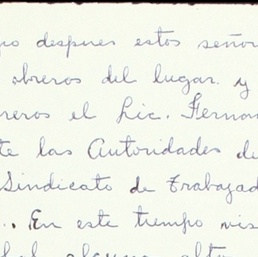 po despues estos señor
obreros del lugar. y
reros el Lic. Fernan
te las Autoridades de
Sindicato de Trabajad
.. En este tiempo vis